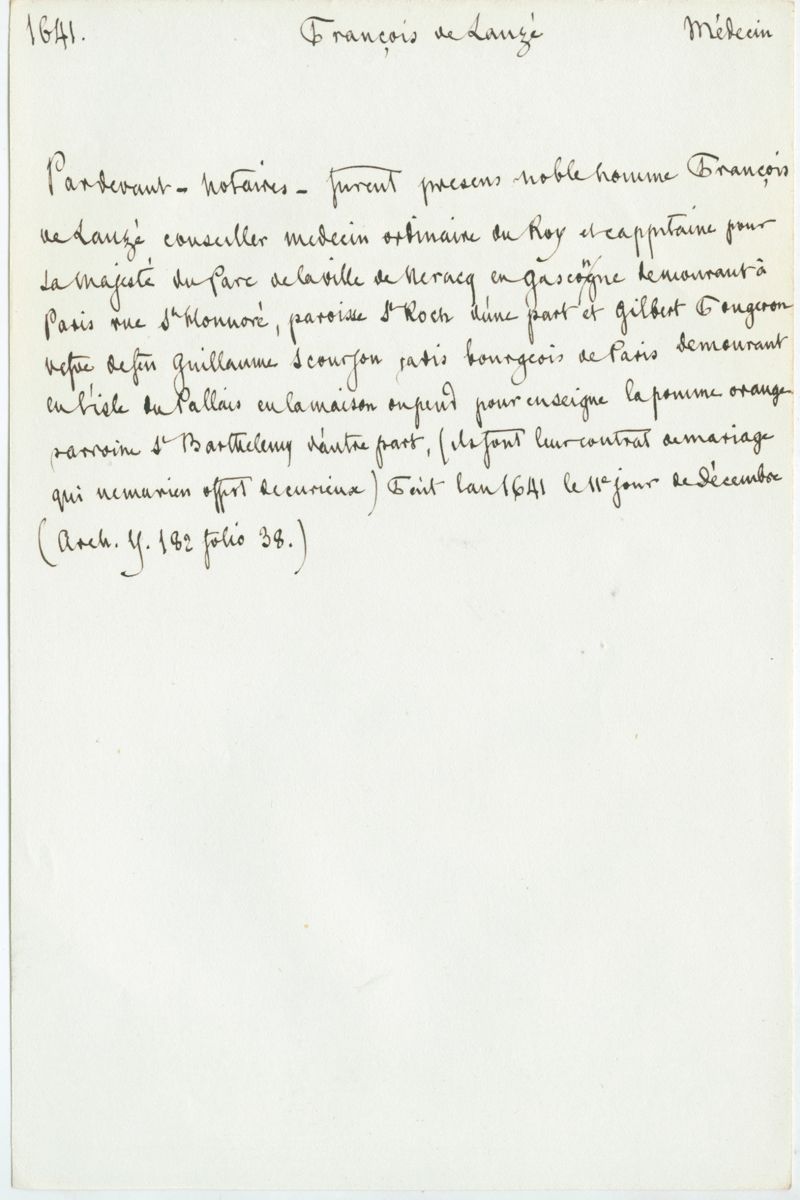 1641. François de Lauzé Médecin
Pardevant - Notaires - furent presens noble homme François
de Lauzé conseiller medecin ordinaire du Roy et cappitaine pour
sa Majesté du Parc de la ville de Neracq en Gascogne demourant à
Paris rue St Honnoré, paroisse St Roch d'une part et Gilbert Fougeron
vefve de feu Guillaume jadis bourgeois de Paris demourant
en l'isle du Pallais en la maison ou pend pour enseigne la pomme orange
parroisse St Barthelemy d'autre part, (ils font leur contrat de mariage
qui n'e rien offrt de curieux) Fait l'an 1641 le 11e jour de Décembre
(Arch. Y. 182 folio 38.)